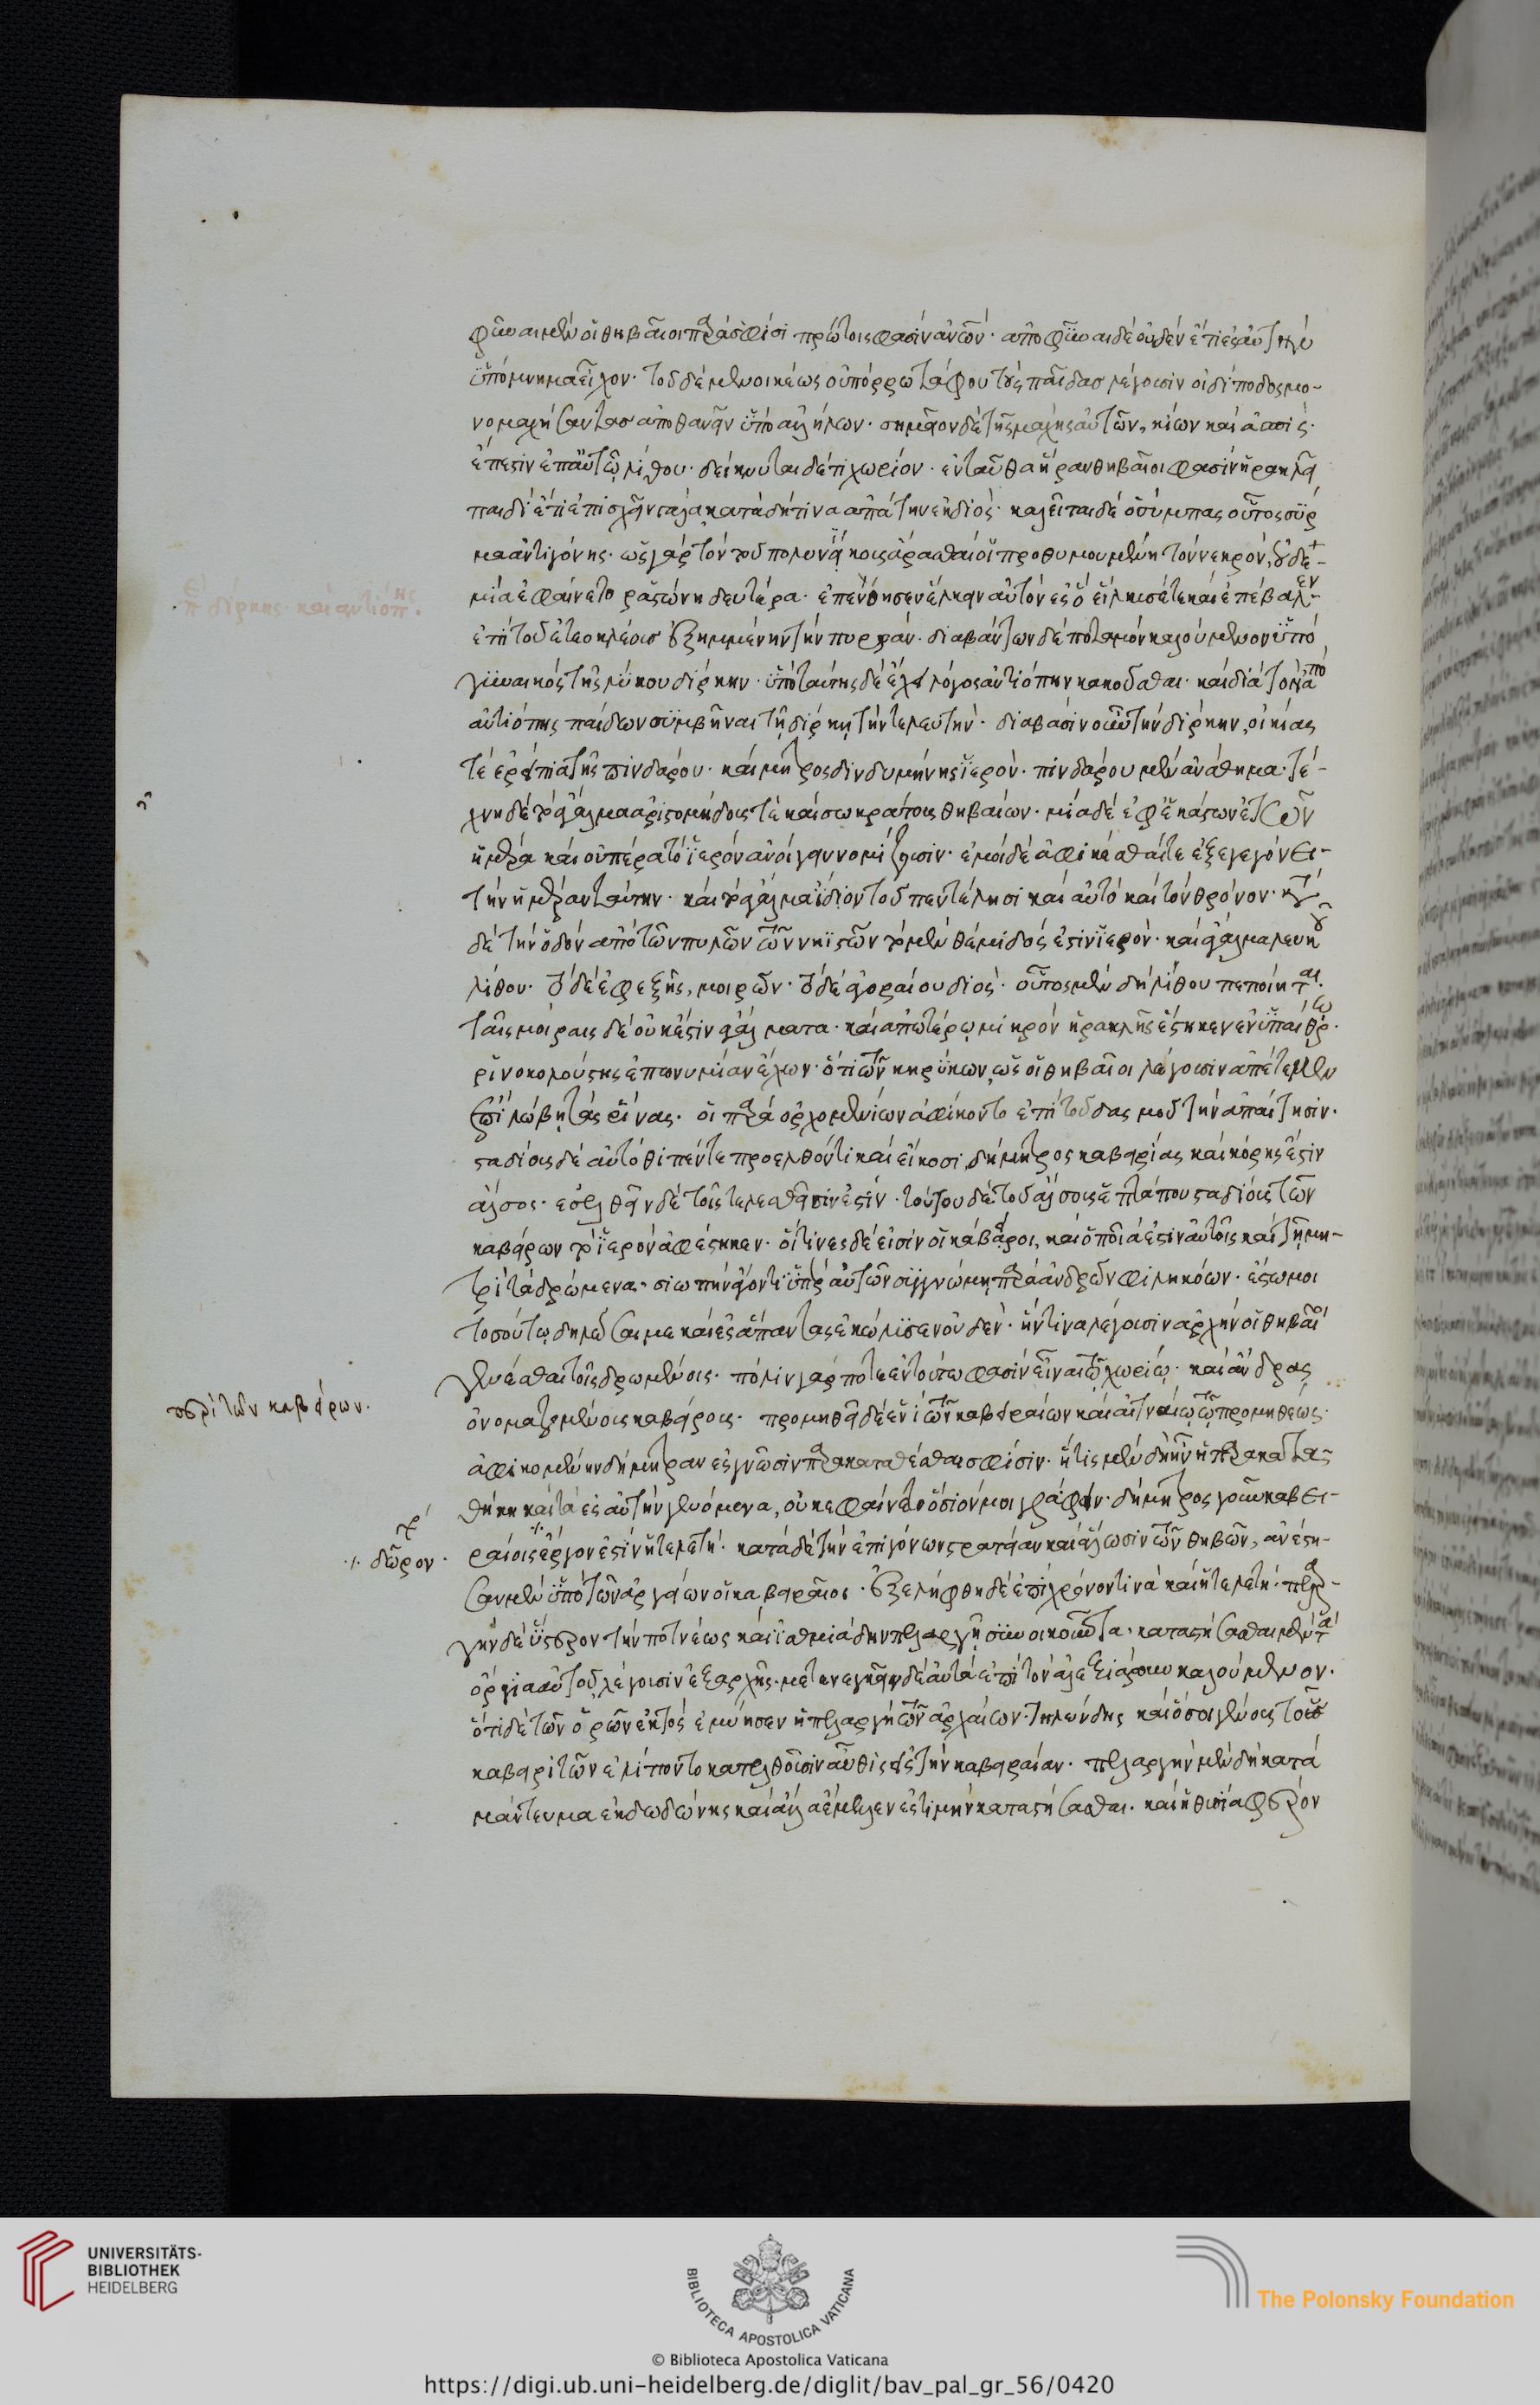 φῦναι μὲν οἱ θηβαῖοι παρὰ σφίσι πρώτοις φασὶν ἀνων· ἀπὸ φῦναι δὲ οὐδὲν ἔτι ἐς αὐτὴν
ὑπόμνημα εἶχον· τοῦ δὲ μενοικέως οὐ πόρρω τάφου τοὺς παῖδας λέγουσιν οἰδίποδος μο-
νομαχήσαντας ἀποθανεῖν ὑπὸ ἀλλήλων· σημεῖον δὲ τῆς μάχης αὐτῶν, κίων καὶ ἀσπὶς
ἔπεστιν ἐπ' αὐτῷ λίθου· δείκνυται δέ τι χωρίον· ἐνταῦθα ἥραν θηβαῖοι φασὶν ἡρακλεῖ
παιδὶ ἔτι ἐπισχεῖν γάλα κατὰ δή τινα ἀπάτην ἐκ διός· καλεῖται δὲ ὁ σύμπας οὗτος σύρ
μα ἀντιγόνης· ὡς γὰρ τὸν τοῦ πολυνείκους ἄρασθαί οἱ προθυμουμένη τὸν νεκρὸν, οὐδε-
μία ἐφαίνετο ῥᾳστώνη δευτέρα· ἐπενόησεν ἕλκειν αὐτὸν ἐς ὃ εἵλκυσέ τε καὶ ἐπέβαλεν
ἐπὶ τοῦ ἐτεοκλέους ἐξημμένην τὴν πυράν· διαβάντων δὲ ποταμὸν καλούμενον ὑπὸ
γυναικὸς τῆς λύκου δίρκην· ὑπὸ ταύτης δὲ ἔχει λόγος ἀντιόπην κακοῦσθαι· καὶ διὰ τοῦτο ὑπὸ
ἀντιόπης παίδων συμβῆναι τῇ δίρκῃ τὴν τελευτήν· διαβᾶσιν οὖν τὴν δίρκην, οἰκίας
τε ἐρείπια τῆς πινδάρου· καὶ μητρὸς δινδυμήνης ἱερόν· πινδάρου μὲν ἀνάθημα· τέ-
χνη δὲ τὸ ἄγαλμα ἀριστομήδους τε καὶ σωκράτους θηβαίων· μιᾷ δὲ ἐφ' ἑκάστων ἐτῶν
ἡμέρᾳ καὶ οὐ πέρα τὸ ἱερὸν ἀνοίγειν νομίζουσιν· ἐμοὶ δὲ ἀφικέσθαι τε ἐξεγεγόνει
τὴν ἡμέραν ταύτην· καὶ τὸ ἄγαλμα ἴδιον τοῦ πεντέλησι καὶ αὐτὸ καὶ τὸν θρόνον· κατὰ
δὲ τὴν ὁδὸν ἀπὸ τῶν πυλῶν τῶν νηιστῶν τὸ μὲν θέμιδός ἐστιν ἱερόν· καὶ ἄγαλμα λευκοῦ
λίθου· τὸ δὲ ἐφεξῆς, μοιρῶν· τὸ δὲ ἀγοραίου διός· οὗτος μὲν δὴ λίθου πεποίηται·
ταῖς μοίραις δὲ οὐκ ἔστιν ἀγάλματα· καὶ ἀπωτέρω μικρὸν ἡρακλῆς ἕστηκεν ἐν ὑπαίθρῳ·
ῥινοκολούστης ἐπωνυμίαν ἔχων· ὅτι τῶν κηρύκων, ὡς οἱ θηβαῖοι λέγουσιν ἀπέτεμεν
ἐπὶ λώβῃ τὰς ῥῖνας· οἳ παρὰ ὀρχομενίων ἀφίκοντο ἐπὶ τοῦ δασμοῦ τὴν ἀπαίτησιν·
σταδίους δὲ αὐτόθι πέντε προελθόντι καὶ εἴκοσι δήμητρος καβειρίας καὶ κόρης ἐστὶν
ἄλσος· ἐσελθεῖν δὲ τοῖς τελεσθεῖσιν ἔστιν· τούτου δὲ τοῦ ἄλσους ἑπτά που σταδίους τῶν
καβείρων τὸ ἱερὸν ἀφέστηκεν· οἵτινες δέ εἰσιν οἱ κάβειροι, καὶ ὁποῖά ἐστιν αὐτοῖς καὶ τῇ μη-
τρὶ τὰ δρώμενα· σιωπὴν ἄγοντι ὑπὲρ αὐτῶν συγγνώμη παρὰ ἀνδρῶν φιληκόων· ἔστω μοι
τοσούτῳ δηλῶσαί με καὶ ἐς ἅπαντας ἐκώλυσεν οὐδέν· ἥντινα λέγουσιν ἀρχὴν οἱ θηβαῖοι
γενέσθαι τοῖς δρωμένοις· πόλιν γάρ ποτε ἐν τούτῳ φασὶν εἶναι τῷ χωρίῳ· καὶ ἄνδρας
περὶ τῶν καβείρων·
ὀνομαζομένους καβείρους· προμηθεῖ δὲ ἑνὶ τῶν καβειραίων καὶ αἰτναίῳ τῷ προμηθέως·
ἀφικομένην δήμητραν ἐς γνῶσιν παρακαταθέσθαι σφίσιν· ἥτις μὲν δὴ ἦν ἡ παρακατα-
θήκη καὶ τὰ ἐς αὐτὴν γενόμενα, οὐκ ἐφαίνετο ὅσιόν μοι γράφειν· δήμητρος γοῦν καβει-
·/· δῶρον·
ραίοις ἔργον ἐστὶν ἡ τελετή· κατὰ δὲ τὴν ἐπιγόνων στρατείαν καὶ ἅλωσιν τῶν θηβῶν, ἀνέστη-
σαν μὲν ὑπὸ τῶν ἀργείων οἱ καβειραῖοι· ἐξελήφθη δὲ ἐπὶ χρόνον τινὰ καὶ ἡ τελετή· πελαρ-
γὴν δὲ ὕστερον τὴν ποτνέως καὶ ἰσθμιάδην πελαργῇ συνοικοῦντα· καταστήσασθαι μὲν τὰ
ὄργια αὐτοῦ λέγουσιν ἐξ ἀρχῆς· μετενεγκεῖν δὲ αὐτὰ ἐπὶ τὸν ἀλεξιάρουν καλούμενον·
ὅτι δὲ τῶν ὅρων ἐκτὸς ἐμύησεν ἡ πελαργὴ τῶν ἀρχαίων· τηλώνδης καὶ ὅσοι γένους τοῦ
καβειριτῶν ἐλίποντο κατελθοῦσιν αὖθις ἐς τὴν καβειραίαν· πελαργὴν μὲν δὴ κατὰ
μάντευμα ἐκ δωδώνης καὶ ἄλλα ἔμελλεν ἐς τιμὴν καταστήσασθαι· καὶ ἡ θυσία φέρον
UNIVERSITÄTS-
BIBLIOTHEK
HEIDELBERG
BIBLIOTECA APOSTOLICA VATICANA
The Polonsky Foundation
© Biblioteca Apostolica Vaticana
https://digi.ub.uni-heidelberg.de/diglit/bav_pal_gr_56/0420